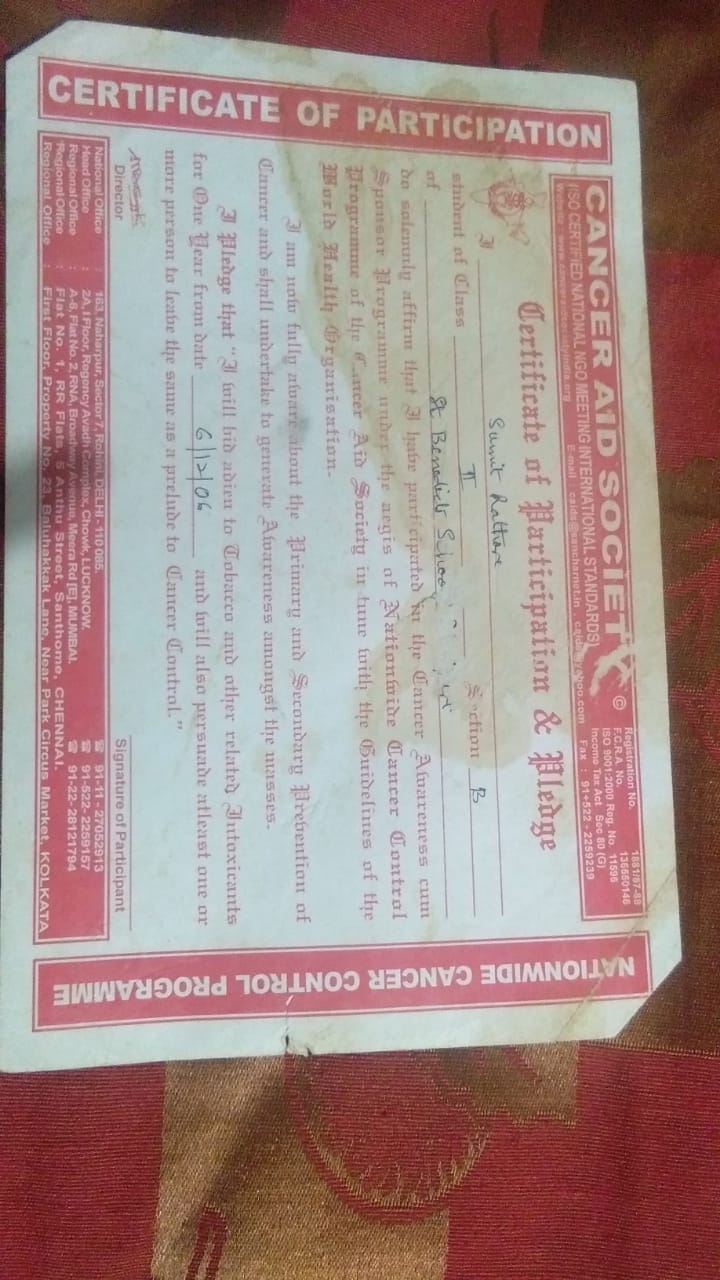 CERTIFICATE OF PARTICIPATION
CANCER AID SOCIETY ©
(ISO CERTIFIED NATIONAL NGO MEETING INTERNATIONAL STANDARDS)
Registration No. 1881/87-88
F.C.R.A. No. 136550146
ISO 9001:2000 Reg. No. 11596
Income Tax Act Sec 80 (G)
Fax : 91+522 - 2259239
Certificate of Participation & Pledge
I Sumit Rathore
student of Class II Section B
of St Benedict's School
do solemnly affirm that I have participated in the Cancer Awareness cum
Sponsor Programme under the aegis of Nationwide Cancer Control
Programme of the Cancer Aid Society in tune with the Guidelines of the
World Health Organisation.
I am now fully aware about the Primary and Secondary Prevention of
Cancer and shall undertake to generate Awareness amongst the masses.
I Pledge that "I will bid adieu to Tobacco and other related Intoxicants
for One Year from date 6/12/06 and will also persuade atleast one or
more person to leave the same as a prelude to Cancer Control."
Director
Signature of Participant
National Office : 163, Naharpur, Sector 7, Rohini, DELHI - 110 085. ☎ 91-11 - 27052913
Head Office : 2A, I Floor, Regency Avadh Complex, Chowk, LUCKNOW. ☎ 91-522- 2259167
Regional Office : A-6, Flat No. 2, RNA, Broadway Avenue, Meera Rd [E], MUMBAI. ☎ 91-22- 28121794
Regional Office : Flat No. 1, RR Flats, 5 Anthu Street, Santhome, CHENNAI.
Regional Office : First Floor, Property No. 23, Baluhakkak Lane, Near Park Circus Market, KOLKATA
NATIONWIDE CANCER CONTROL PROGRAMME